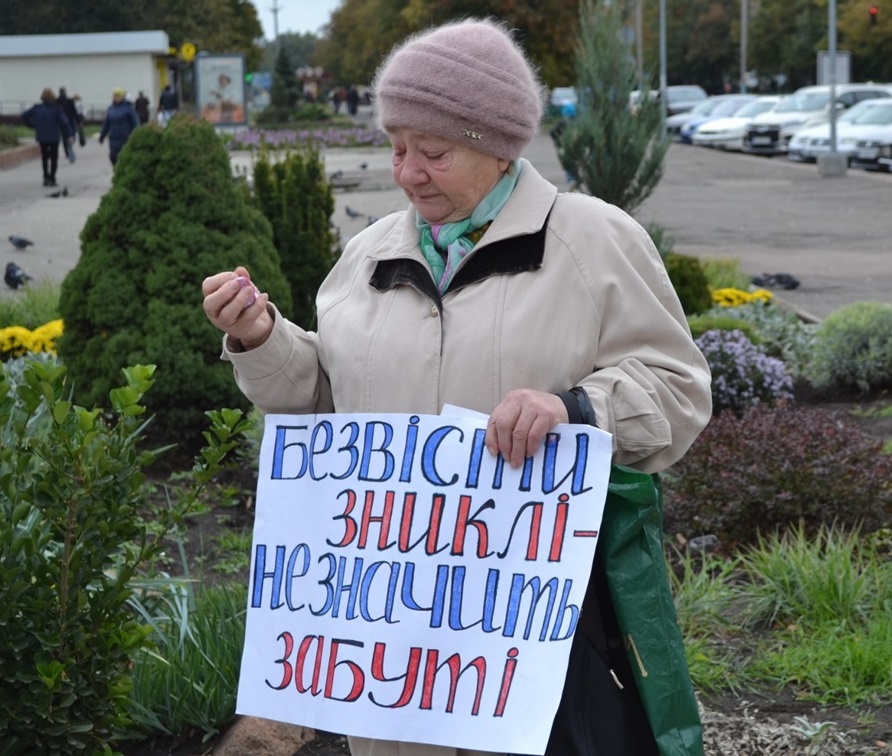 Безвісти
зниклі-
не значить
забуті